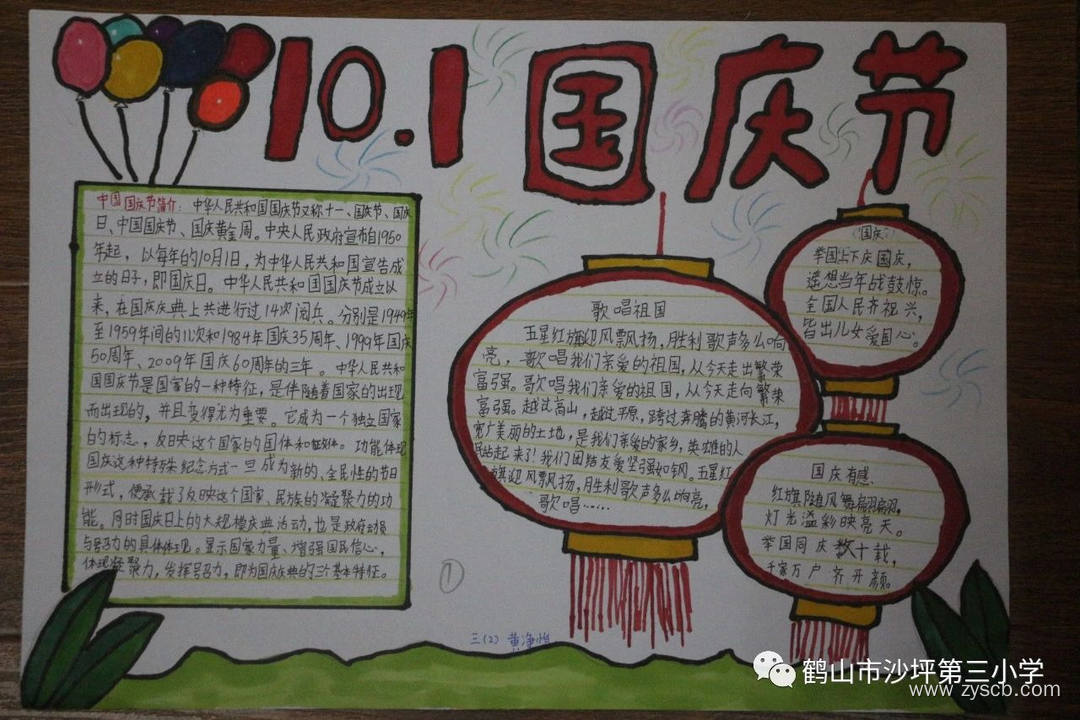 10.1国庆节
中国国庆节简介：中华人民共和国国庆节又称十一、国庆节、国庆
日、中国国庆节、国庆黄金周。中央人民政府宣布自1950
年起，以每年的10月1日，为中华人民共和国宣告成
立的日子，即国庆日。中华人民共和国国庆节成立以
来，在国庆庆典上共进行过14次阅兵。分别是1949年
至1959年间的11次和1984年国庆35周年、1999年国庆
50周年、2009年国庆60周年的三年。中华人民共和
国国庆节是国家的一种特征，是伴随着国家的出现
而出现的，并且变得尤为重要。它成为一个独立国家
的标志，反映这个国家的国体和政体。功能体现
国庆这种特殊纪念方式一旦成为新的、全民性的节日
形式，便承载了反映这个国家、民族的凝聚力的功
能。同时国庆日上的大规模庆典活动，也是政府动员
与号召力的具体体现。显示国家力量、增强国民信心，
体现凝聚力，发挥号召力，即为国庆庆典的三个基本特征。
歌唱祖国
五星红旗迎风飘扬，胜利歌声多么响
亮，歌唱我们亲爱的祖国，从今天走出繁荣
富强。歌唱我们亲爱的祖国，从今天走向繁荣
富强。越过高山，越过平原，跨过奔腾的黄河长江，
宽广美丽的土地，是我们亲爱的家乡，英雄的人
民站起来了！我们团结友爱坚强如钢。五星红
旗迎风飘扬，胜利歌声多么响亮，
歌唱……
《国庆》
举国上下庆国庆，
遥想当年战鼓惊。
全国人民齐祝兴，
皆出儿女爱国心。
国庆有感
红旗随风舞翩翩，
灯光溢彩映亮天。
举国同庆数十载，
千家万户齐开颜。
①
三(2) 黄净怡
鹤山市沙坪第三小学
www.zyscb.com